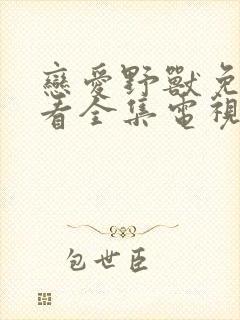 戀愛野獸免
看全集電視
包世臣